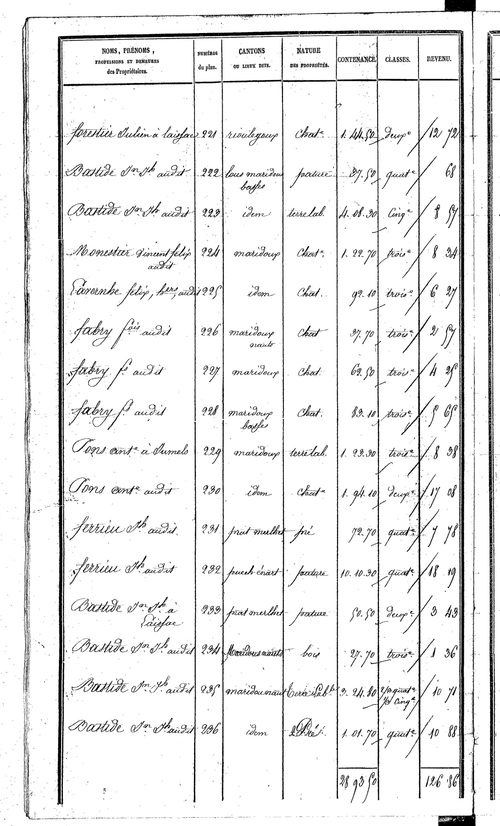 NOMS, PRÉNOMS, PROFESSIONS ET DEMEURES des Propriétaires. NUMÉROS du plan. CANTONS OU LIEUX DITS. NATURE DES PROPRIÉTÉS. CONTENANCE. CLASSES. REVENU.
forestier Julien à laissac 221 rioulegoux Chatᵉ 1. 44. 50 deuxᵉ 12 72
Bastide Jⁿ Jʰ audit 222 lous maridoux pature 37. 50 quatᵉ 68
basses
Bastide Jⁿ Jʰ audit 223 idem terre lab. 4. 08. 30 Cinqᵉ 8 57
Monestier Vincent felix 224 maridoux Chatᵉ. 1. 22. 70 troisᵉ 8 34
audit
felix, hers, audit 225 idem Chat. 92. 10 troisᵉ 6 27
fabry fois audit 226 maridoux Chat 37. 70 troisᵉ 2 57
nauts
fabry fs audit 227 maridoux Chat 62. 50 troisᵉ 4 25
fabry fs audit 228 maridoux Chat. 83. 10 troisᵉ 5 65
basses
Pons antᵉ à Jumels 229 maridoux terre lab. 1. 23. 30 troisᵉ 8 38
Pons antᵉ audit 230 idem Chatᵉ 1. 94. 10 deuxᵉ 17 08
ferrieu Jʰ audit 231 prat merlhet pré 72. 70 quatᵉ 7 78
ferrieu Jʰ audit 232 puech énart pature 10. 10. 30 quatᵉ 18 19
Bastide Jⁿ Jʰ à 233 prat merlhet pature 50. 50 deuxᵉ 3 43
Laissac
Bastide Jⁿ Jʰ audit 234 maridous nauts bois 27. 70 troisᵉ 1 36
Bastide Jⁿ Jʰ audit 235 maridou nau terre lab. 3. 24. 80 10 71
Bastide Jⁿ Jʰ audit 236 idem Pré 1. 01. 70 quatᵉ 10 88
28 93 50 126 86